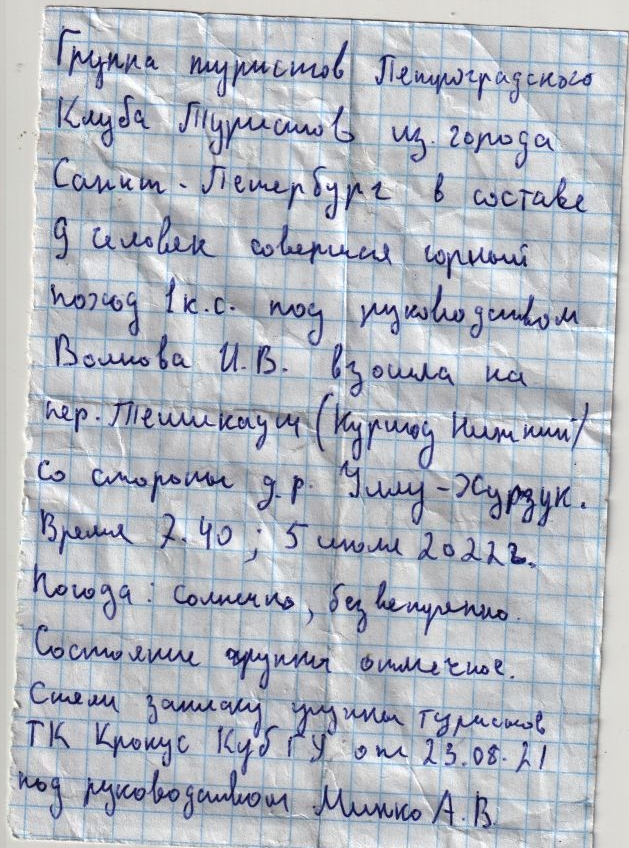 Группа туристов Петроградского
Клуба Туристов из города
Санкт-Петербург в составе
9 человек совершая горный
поход 1 к.с. под руководством
Волкова И.В. взошла на
пер. Тешикауш (Куршод Нижний)
со стороны д.р. Уллу-Хурзук.
Время 7.40; 5 июля 2022г.
Погода: солнечно, безветренно.
Состояние группы отличное.
Сняли записку группы туристов
ТК Крокус КубГУ от 23.08.21
под руководством Минко А.В.